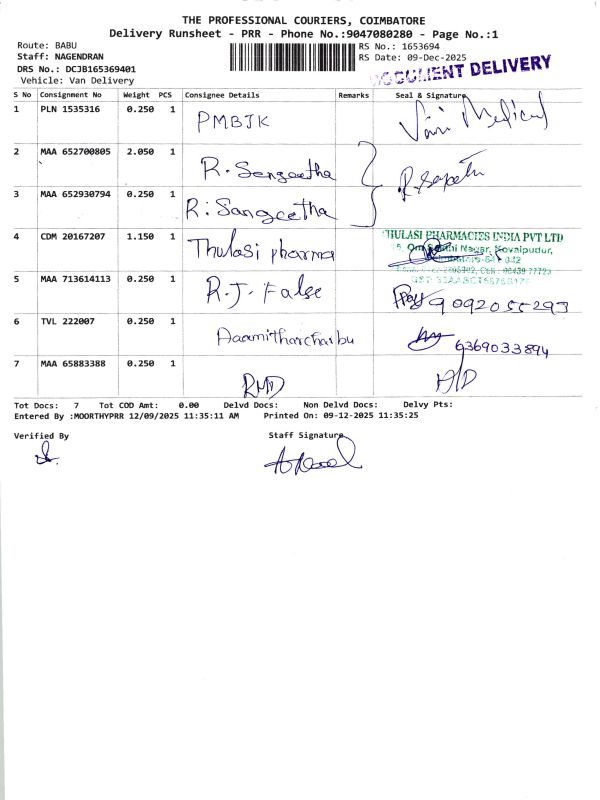 THE PROFESSIONAL COURIERS, COIMBATORE
Delivery Runsheet - PRR - Phone No.:9047080280 - Page No.:1
Route: BABU
Staff: NAGENDRAN
DRS No.: DCJB165369401
Vehicle: Van Delivery
RS No.: 1653694
RS Date: 09-Dec-2025
DOCUMENT DELIVERY
S No Consignment No Weight PCS Consignee Details Remarks Seal & Signature
1 PLN 1535316 0.250 1 PMBJK Medical
2 MAA 652700805 2.050 1 R. Sangeetha
3 MAA 652930794 0.250 1 R. Sangeetha
4 CDM 20167207 1.150 1 Thulasi pharma THULASI PHARMACIES INDIA PVT LTD
Nagar, Kovaipudur,
5 MAA 713614113 0.250 1 R.J. False 9092055293
6 TVL 222007 0.250 1 6369033894
7 MAA 65883388 0.250 1
Tot Docs: 7 Tot COD Amt: 0.00 Delvd Docs: Non Delvd Docs: Delvy Pts:
Entered By :MOORTHYPRR 12/09/2025 11:35:11 AM Printed On: 09-12-2025 11:35:25
Verified By Staff Signature